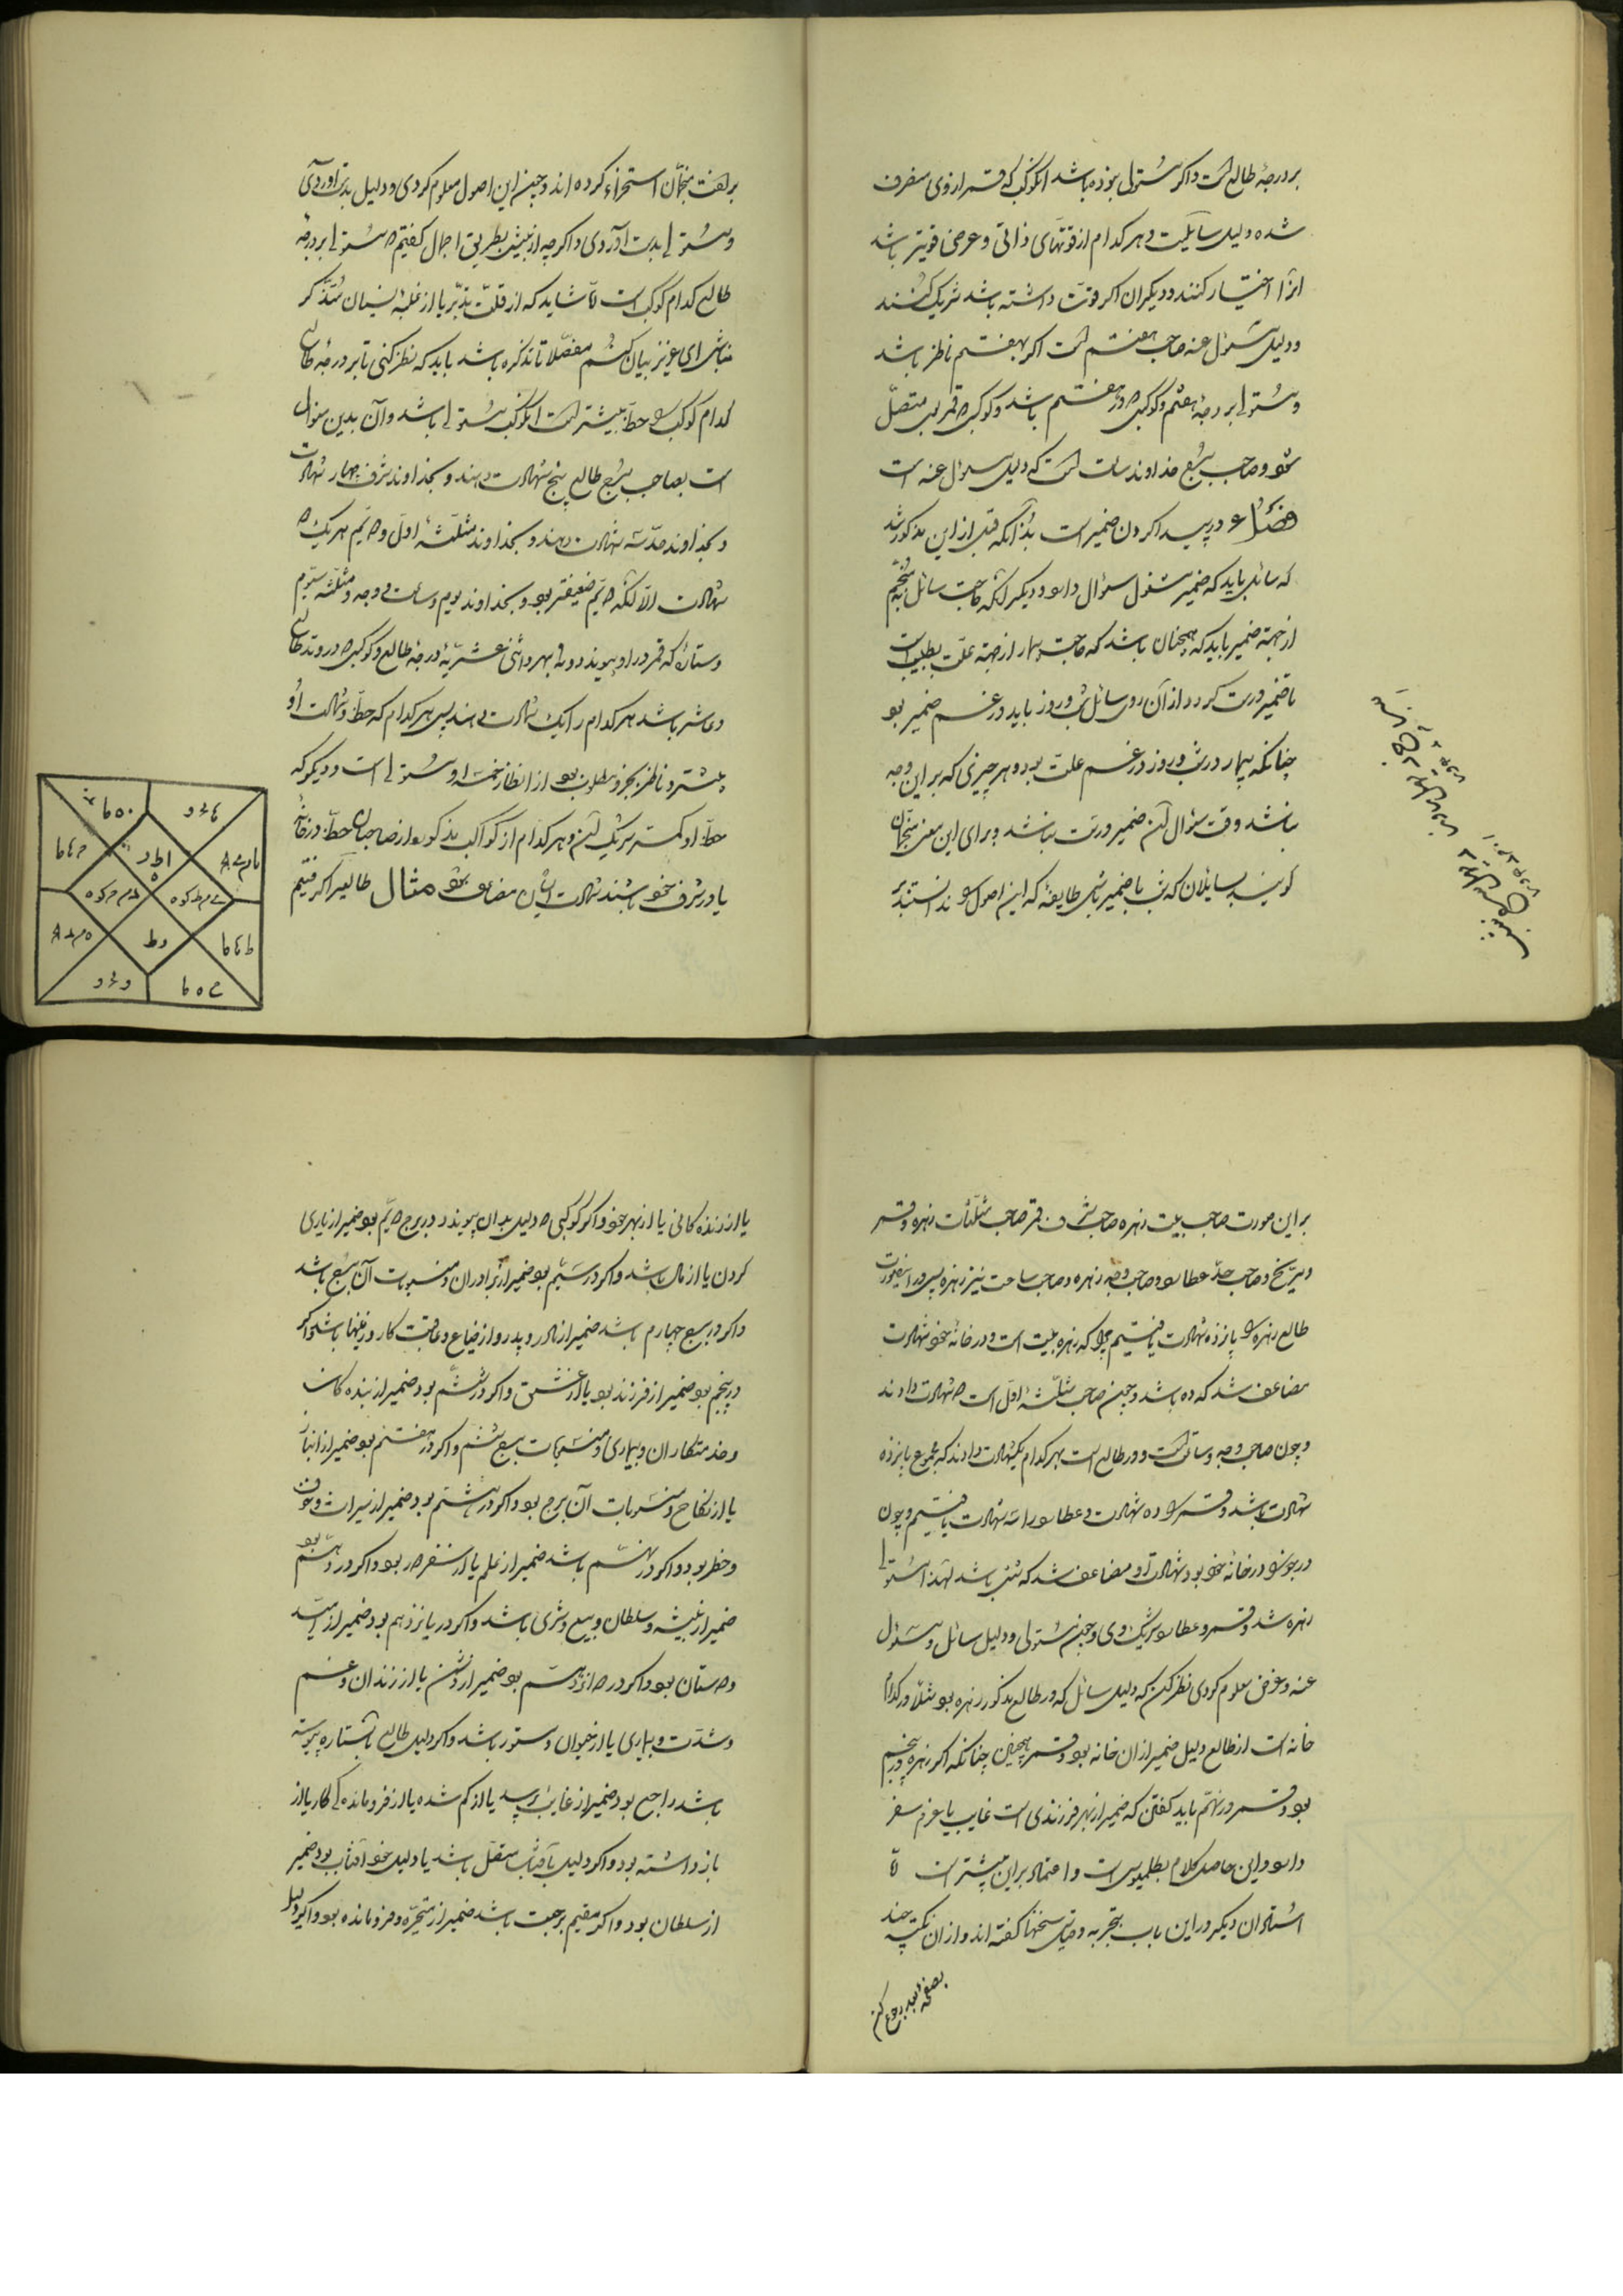 بر درجهٔ طالع است و اگر مستولی بوده باشد انکوکب که قمر از وی منصرف
شده دلیل سایلست و هر کدام از قوتهای ذاتی و عرضی قویتر باشد
انرا اختیار کنند و دیکران اکر قوت داشته باشد شریک کنند
و دلیل مسئول عنه صاحب هفتم است اکر بهفتم ناظر باشد
و مستولی بر درجهٔ هفتم و کوکبی که در هفتم باشد و کوکبی که قمر بوی متصل
شود و صاحب بیع خداوند ساعت است که دلیل مسؤل عنه است
فصل در پیدا کردن ضمیر است بدانکه قبل از این مذکور شد
که سائل باید که ضمیر مشغول سؤال دارد و دیگر آنکه حاجت سائل بمنجم
از جهة ضمیر باید که همچنان باشد که حاجت بیمار از جهة علت بطبیب است
تا ضمیر درست کردد از آن روی سائل شب و روز باید در غم ضمیر بود
چنانکه بیمار در شب و روز در غم علت بود و هر چیزی که بر این وجه
نباشد وقت سؤال آن ضمیر درست نباشد و برای این معنی منجمان
کویند بسایلان که شب با ضمیر باش طایفهٔ که این اصول را ندانستند بر
بر گفت منجمان استهزاء کرده اند و چون این اصول معلوم کردی و دلیل بدست آوردی
و مستولی بدست آوردی و اگر چه از پیش بطریق اجمال کفتیم که مستولی بر درجه
طالع کدام کوکب است تا شاید که از قلت تدبر یا از غلبهٔ نسیان متذکر
نباشی ای عزیز بیان کنم مفصلا تا تذکره باشد باید که نظر کنی تا بر درجهٔ طالع
کدام کوکب را حظ بیشتر است انکوکب مستولی باشد و آن بدین منوال
است بصاحب بیع طالع پنج شهادت دهند و بخداوند شرف چهار شهادت
و بخداوند حد سه شهادت دهند و بخداوند مثلثهٔ اول و دویم هر یک دو
شهادت الا آنکه دویم ضعیفتر بود و بخداوند یوم و ساعت و وجه و مثلثه سیوم
و ستارهٔ که قمر در او پیوندد و نه بهر و اثنی عشریهٔ درجهٔ طالع و کوکبی که در وتد طالع
و عاشر باشد هر کدام را یک شهادت دهند پس هر کدام که حظ و شهادت او
بیشتر و ناظر بجزو مطلوب بود از انظار خمسه او مستولی است و دیگر که
حظ او کمتر شریک آن و هر کدام از کواکب مذکور از صاحبان حظ در خانهٔ
یا در شرف خود باشند شهادت ایشان مضاعف شود مثال طالعی را کرفتیم
بر این صورت صاحب بیت زهره صاحب شرف قمر صاحب مثلثات زهره و قمر
و مریخ و صاحب حد عطارد و صاحب وجه زهره و صاحب ساعت نیز زهره پس در اینصورت
طالع زهره را پانزده شهادت یافتیم چرا که زهره بیت است و در خانهٔ خود شهادت
مضاعف شد که ده باشد و چون صاحب مثلثهٔ اول است دو شهادت دادند
و چون صاحب وجه و ساعت است و در طالع است بهر کدام یکشهادت دادند که مجموع پانزده
شهادت باشد و قمر را ده شهادت و عطارد را سه شهادت یافتیم و چون
در جوزا در خانهٔ خود بود شهادت او مضاعف شد که شش باشد لهذا مستولی
زهره شد و قمر و عطارد شریک وی و چون مستولی و دلیل سائل و مسئول
عنه و غرض معلوم کردی نظر کن که دلیل سائل که در طالع مذکور زهره بود مثلا در کدام
خانه است از طالع دلیل ضمیر از ان خانه بود و قمر همچنین چنانکه اکر زهره در پنجم
بود و قمر در نهم باید کفتن که ضمیر از بهر فرزندی است غایب یا عزم سفر
دارد و این حاصل کلام بطلمیوس است و اعتماد بر این بیشتر است تا
استادان دیکر در این باب بتجربه و قیاس سخنها کفته اند و از ان نکته چند
بصفحه بعد رجوع کن
یا از زنده کانی یا از بهر خود و اکر کوکبی که دلیل بدان پیوندد در برج دویم بود ضمیر از یاری
کردن یا از مال باشد و اکر در سیم بود ضمیر از برادران و منسوبات آن بیع باشد
و اکر در بیع چهارم باشد ضمیر از مادر و پدر و از ضیاع و عاقبت کار و زمینها باشد و اکر
در پنجم بود ضمیر از فرزند بود یا از عشق و اکر در ششم بود ضمیر از بنده کان
و خدمتکاران و بیماری و منسوبات بیع ششم و اکر در هفتم بود ضمیر از انباز
یا از نکاح و منسوبات آن برج بود و اکر در هشتم بود ضمیر از میراث و خوف
و خطر بود و اکر در نهم باشد ضمیر از علم یا از سفر بود و اکر در دهم بود
ضمیر از پیشه و سلطان و بیع و شری باشد و اکر در یازدهم بود ضمیر از امید
و دوستان بود و اکر در دوازدهم بود ضمیر از دشمن یا از زندان و غم
و شدت و بیماری یا از حیوان و ستور باشد و اکر دلیل طالع بستاره پیوسته
باشد راجع بود ضمیر از غایب پرسد یا از کم شده یا از فرو مانده کی کار یا از
باز داشته بود و اکر دلیل بآفتاب متصل باشد یا دلیل خود آفتاب بود ضمیر
از سلطان بود و اکر مقیم برجعت باشد ضمیر از متحیر و فرو مانده بود و اکر دلیل